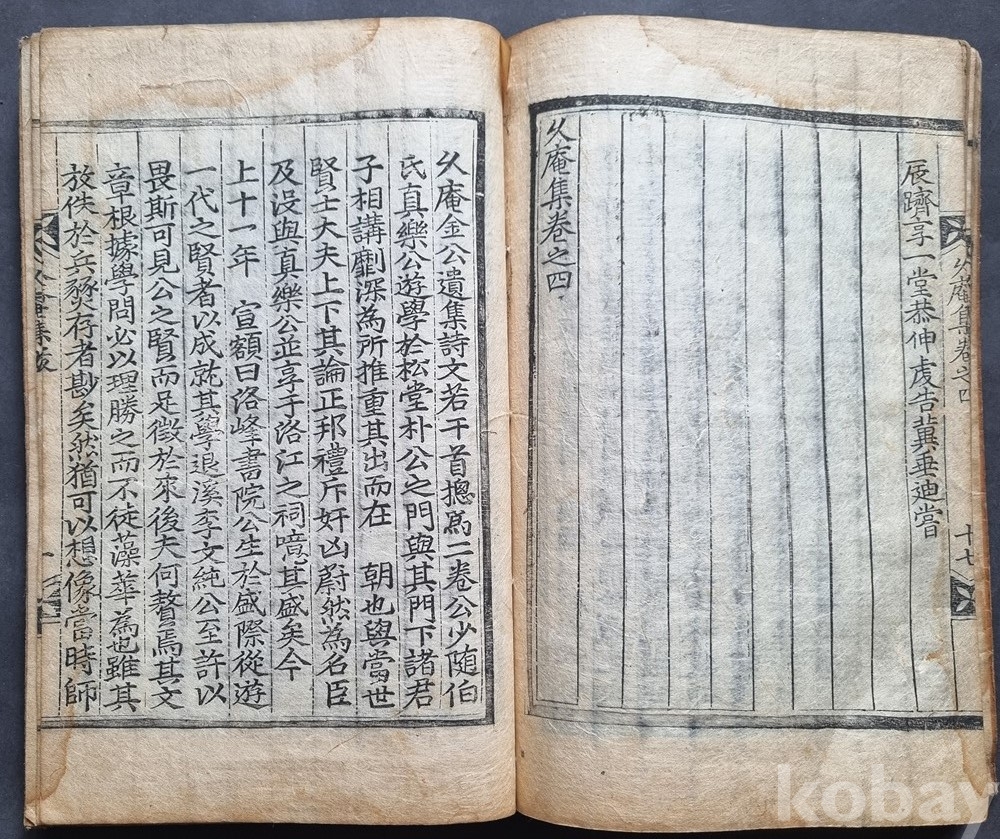 乆庵集卷之四
十七
辰躋享一堂恭伸虔告冀垂迪嘗
乆庵集卷之四
乆庵金公遺集詩文若干首摠爲二卷公少隨伯
氏真樂公遊學於松堂朴公之門與其門下諸君
子相講劘深為所推重其出而在 朝也與當世
賢士大夫上下其論正邦禮斥奸凶蔚然為名臣
及沒與真樂公並享于洛江之祠噫其盛矣今
上十一年 宣額曰洛峰書院公生於盛際從遊
一代之賢者以成就其學退溪李文純公至許以
畏斯可見公之賢而足徵於來後夫何贅焉其文
章根據學問必以理勝之而不徒藻華為也雖其
放佚於兵燹存者尠矣然猶可以想像當時師
集跋
一
kobay